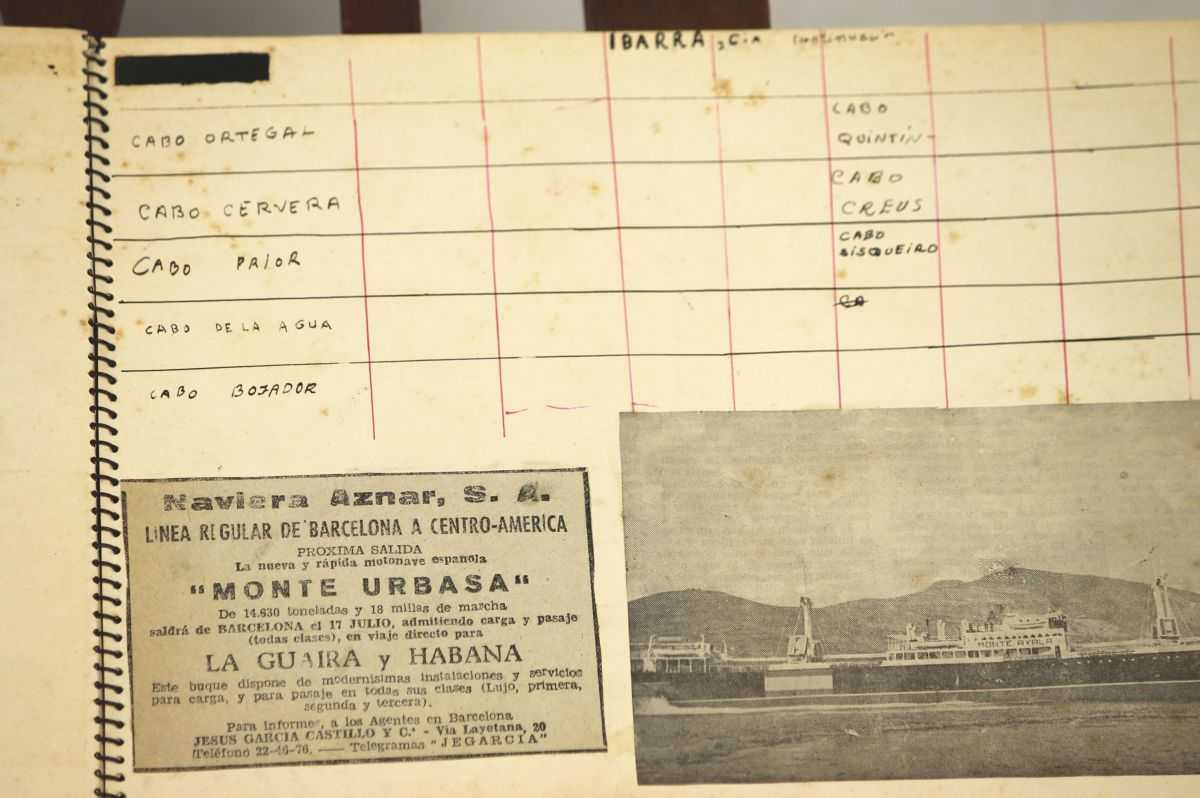 IBARRA y Cia
CABO ORTEGAL
CABO CERVERA
CABO PRIOR
CABO DE LA AGUA
CABO BOJADOR
CABO
QUINTÍN
CABO
CREUS
CABO
SISQUEIRO
Naviera Aznar, S. A.
LINEA REGULAR DE BARCELONA A CENTRO-AMERICA
PROXIMA SALIDA
La nueva y rápida motonave española
"MONTE URBASA"
De 14.630 toneladas y 18 millas de marcha
saldrá de BARCELONA el 17 JULIO, admitiendo carga y pasaje
(todas clases), en viaje directo para
LA GUAIRA y HABANA
Este buque dispone de modernísimas instalaciones y servicios
para carga, y para pasaje en todas sus clases (Lujo, primera,
segunda y tercera).
Para informes, a los Agentes en Barcelona
JESUS GARCIA CASTILLO Y C.ª - Vía Layetana, 20
(Teléfono 22-46-76. — Telegramas "JEGARCIA"
MONTE AYALA